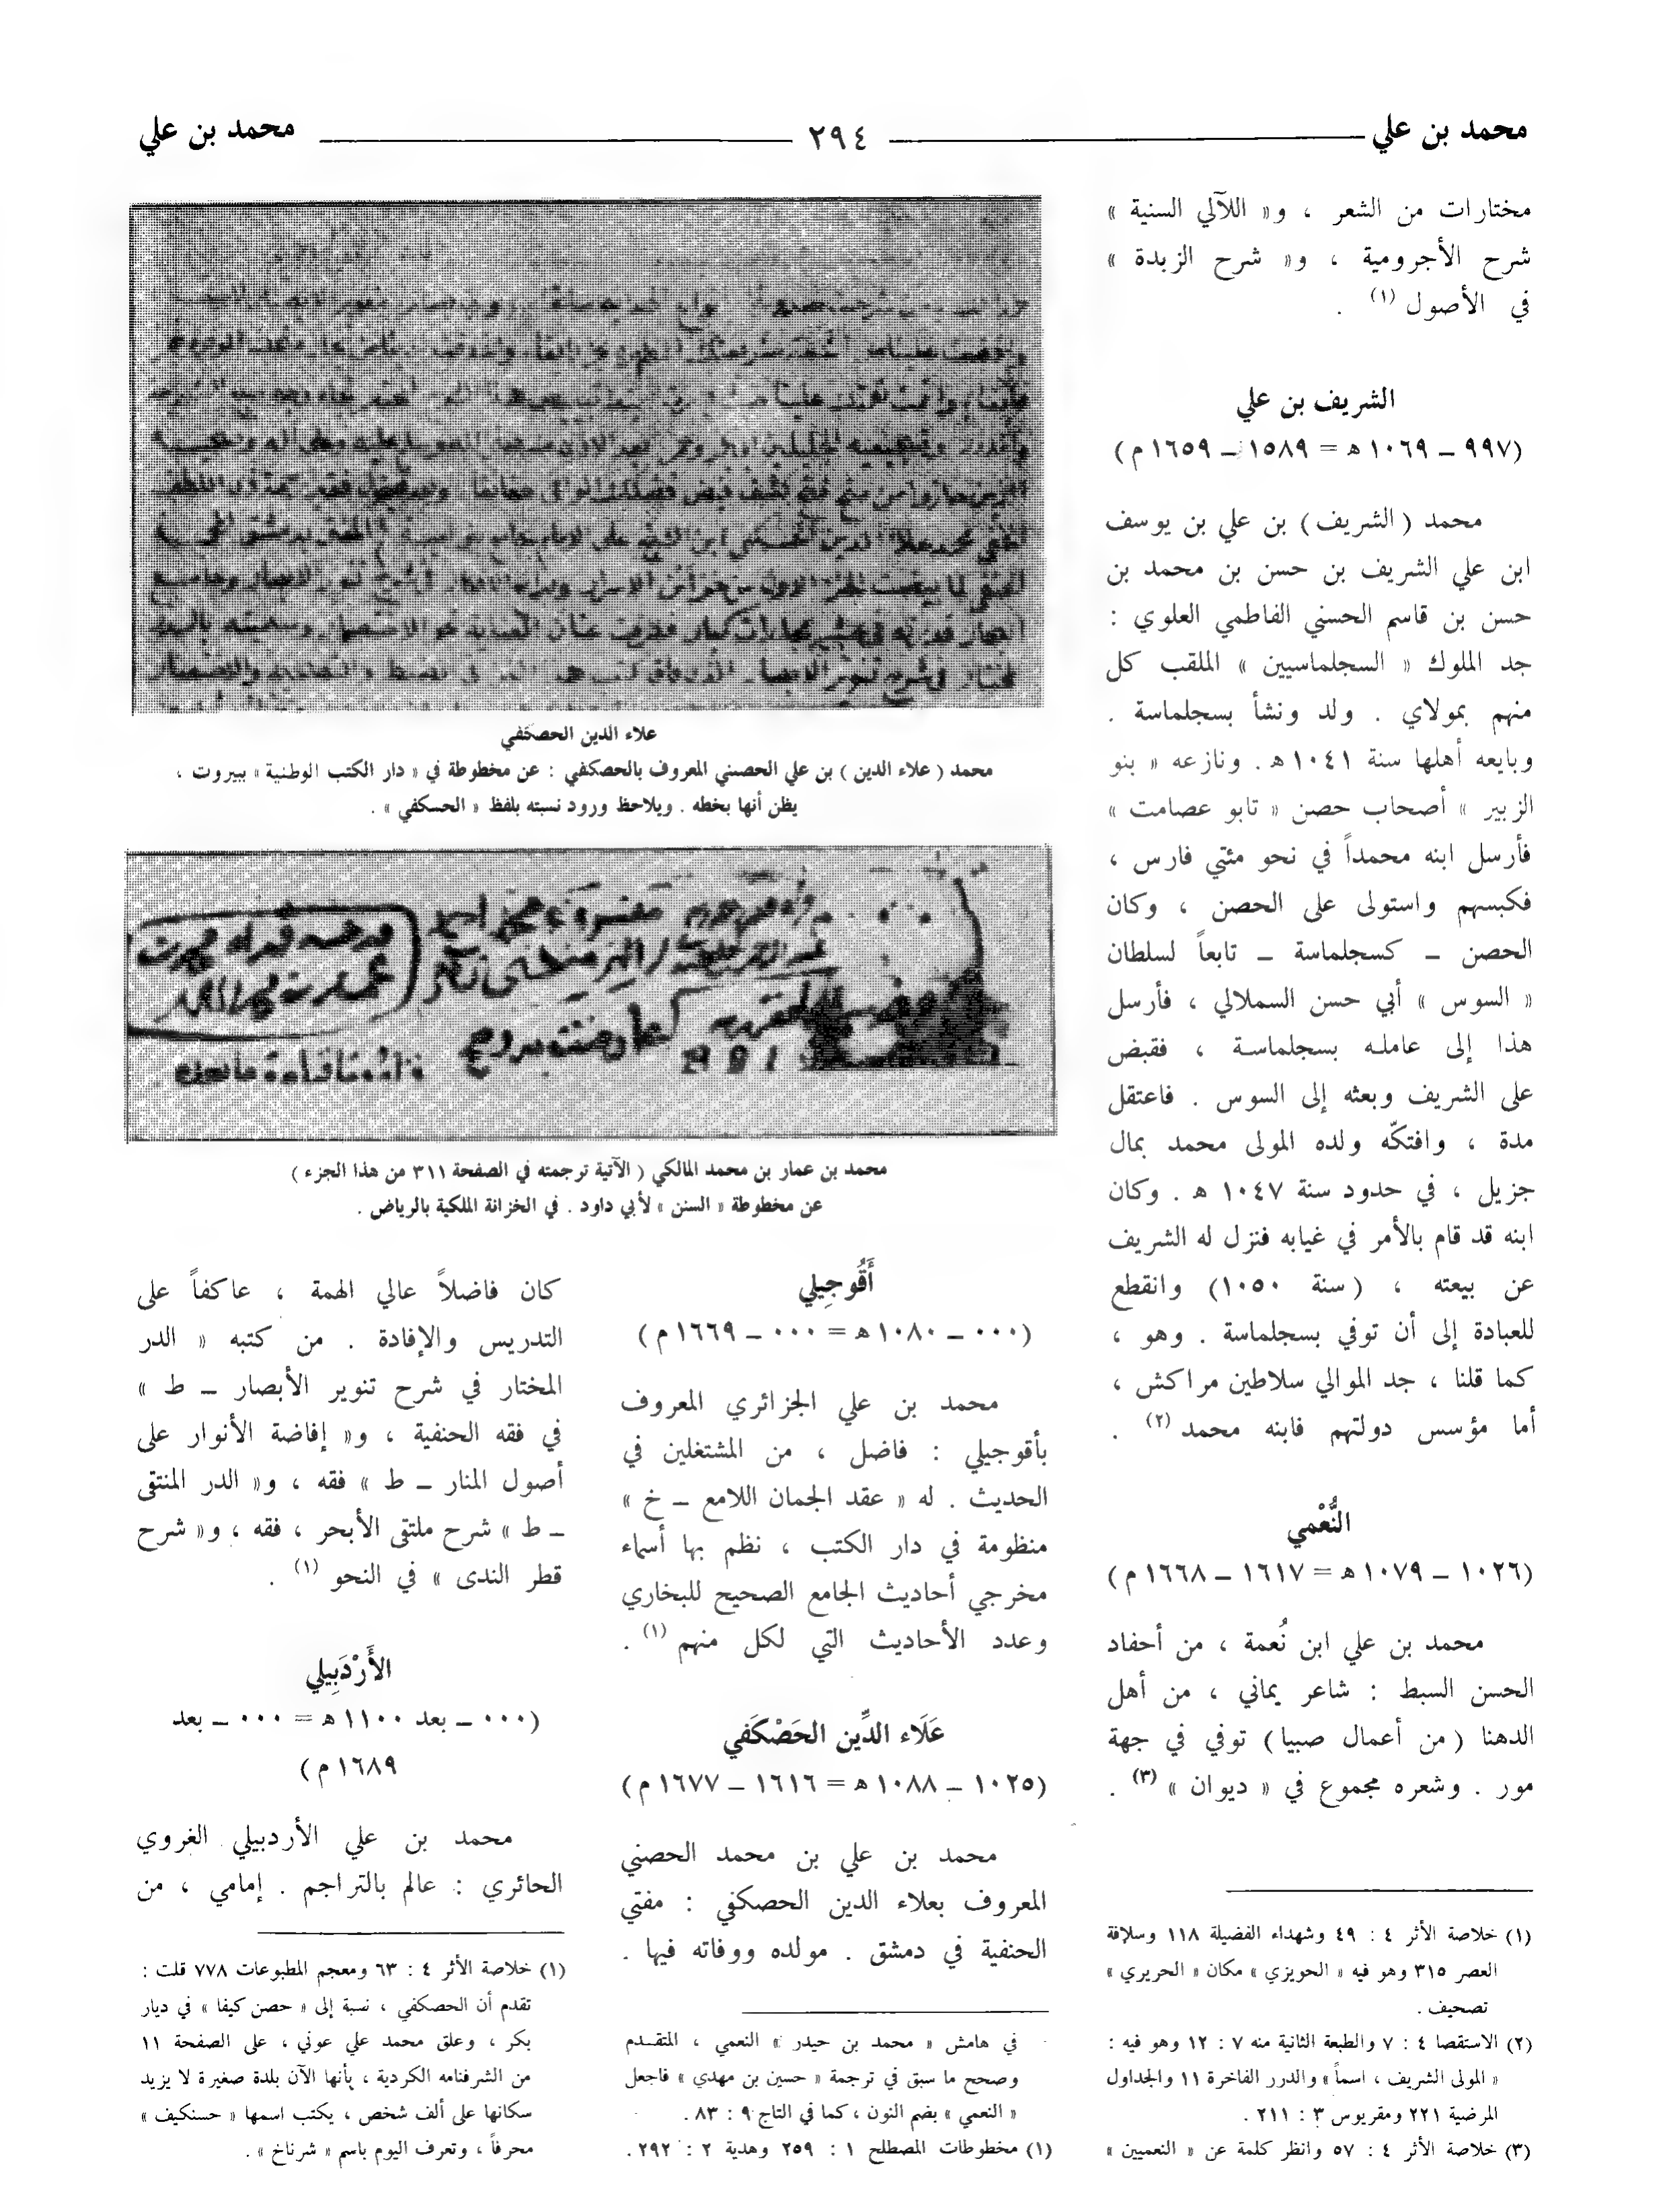 محمد بن علي ٢٩٤ محمد بن علي
مختارات من الشعر ، و« اللآلي السنية »
شرح الأجرومية ، و« شرح الزبدة »
في الأصول (١) .
الشريف بن علي
(٩٩٧ – ١٠٦٩ ه = ١٥٨٩ – ١٦٥٩ م)
محمد (الشريف) بن علي بن يوسف
ابن علي الشريف بن حسن بن محمد بن
حسن بن قاسم الحسني الفاطمي العلوي :
جد الملوك « السجلماسيين » الملقب كل
منهم بمولاي . ولد ونشأ بسجلماسة .
وبايعه أهلها سنة ١٠٤١ ه . ونازعه « بنو
الزبير » أصحاب حصن « تابو عصامت »
فأرسل ابنه محمداً في نحو مئتي فارس ،
فكبسهم واستولى على الحصن ، وكان
الحصن – كسجلماسة – تابعاً لسلطان
« السوس » أبي حسن السملالي ، فأرسل
هذا إلى عامله بسجلماسة ، فقبض
على الشريف وبعثه إلى السوس . فاعتقل
مدة ، وافتكّه ولده المولى محمد بمال
جزيل ، في حدود سنة ١٠٤٧ ه . وكان
ابنه قد قام بالأمر في غيابه فنزل له الشريف
عن بيعته ، (سنة ١٠٥٠) وانقطع
للعبادة إلى أن توفي بسجلماسة . وهو ،
كما قلنا ، جد الموالي سلاطين مراكش ،
أما مؤسس دولتهم فابنه محمد (٢) .
النُّعْمي
(١٠٢٦ – ١٠٧٩ ه = ١٦١٧ – ١٦٦٨ م)
محمد بن علي ابن نُعمة ، من أحفاد
الحسن السبط : شاعر يماني ، من أهل
الدهنا (من أعمال صبيا) توفي في جهة
مور . وشعره مجموع في « ديوان » (٣) .
(١) خلاصة الأثر ٤ : ٤٩ وشهداء الفضيلة ١١٨ وسلافة
العصر ٣١٥ وهو فيه « الحويزي » مكان « الحريري »
تصحيف .
(٢) الاستقصا ٤ : ٧ والطبعة الثانية منه ٧ : ١٢ وهو فيه :
« المولى الشريف ، اسماً » والدرر الفاخرة ١١ والجداول
المرضية ٢٢١ ومقريوس ٣ : ٢١١ .
(٣) خلاصة الأثر ٤ : ٥٧ وانظر كلمة عن « النعميين »
علاء الدين الحصكفي
محمد ( علاء الدين ) بن علي الحصني المعروف بالحصكفي : عن مخطوطة في « دار الكتب الوطنية » ببيروت ،
يظن أنها بخطه . ويلاحظ ورود نسبته بلفظ « الحسكفي » .
محمد بن عمار بن محمد المالكي ( الآتية ترجمته في الصفحة ٣١١ من هذا الجزء )
عن مخطوطة « السنن » لأبي داود . في الخزانة الملكية بالرياض .
أَقُوجِيلي
(٠٠٠ – ١٠٨٠ ه = ٠٠٠ – ١٦٦٩ م)
محمد بن علي الجزائري المعروف
بأقوجيلي : فاضل ، من المشتغلين في
الحديث . له « عقد الجمان اللامع – خ »
منظومة في دار الكتب ، نظم بها أسماء
مخرجي أحاديث الجامع الصحيح للبخاري
وعدد الأحاديث التي لكل منهم (١) .
عَلَاء الدِّين الحَصْكَفي
(١٠٢٥ – ١٠٨٨ ه = ١٦١٦ – ١٦٧٧ م)
محمد بن علي بن محمد الحصني
المعروف بعلاء الدين الحصكفي : مفتي
الحنفية في دمشق . مولده ووفاته فيها .
في هامش « محمد بن حيدر » النعمي ، المتقدم
وصحح ما سبق في ترجمة « حسين بن مهدي » فاجعل
« النعمي » بضم النون ، كما في التاج ٩ : ٨٣ .
(١) مخطوطات المصطلح ١ : ٢٥٩ وهدية ٢ : ٢٩٢ .
كان فاضلاً عالي الهمة ، عاكفاً على
التدريس والإفادة . من كتبه « الدر
المختار في شرح تنوير الأبصار – ط »
في فقه الحنفية ، و« إفاضة الأنوار على
أصول المنار – ط » فقه ، و« الدر المنتقى
– ط » شرح ملتقى الأبحر ، فقه ، و« شرح
قطر الندى » في النحو (١) .
الأَرْدَبِيلي
(٠٠٠ – بعد ١١٠٠ ه = ٠٠٠ – بعد
١٦٨٩ م)
محمد بن علي الأردبيلي الغروي
الحائري : عالم بالتراجم . إمامي ، من
(١) خلاصة الأثر ٤ : ٦٣ ومعجم المطبوعات ٧٧٨ قلت :
تقدم أن الحصكفي ، نسبة إلى « حصن كيفا » في ديار
بكر ، وعلق محمد علي عوني ، على الصفحة ١١
من الشرفنامه الكردية ، بأنها الآن بلدة صغيرة لا يزيد
سكانها على ألف شخص ، يكتب اسمها « حسنكيف »
محرفاً ، وتعرف اليوم باسم « شرناخ » .